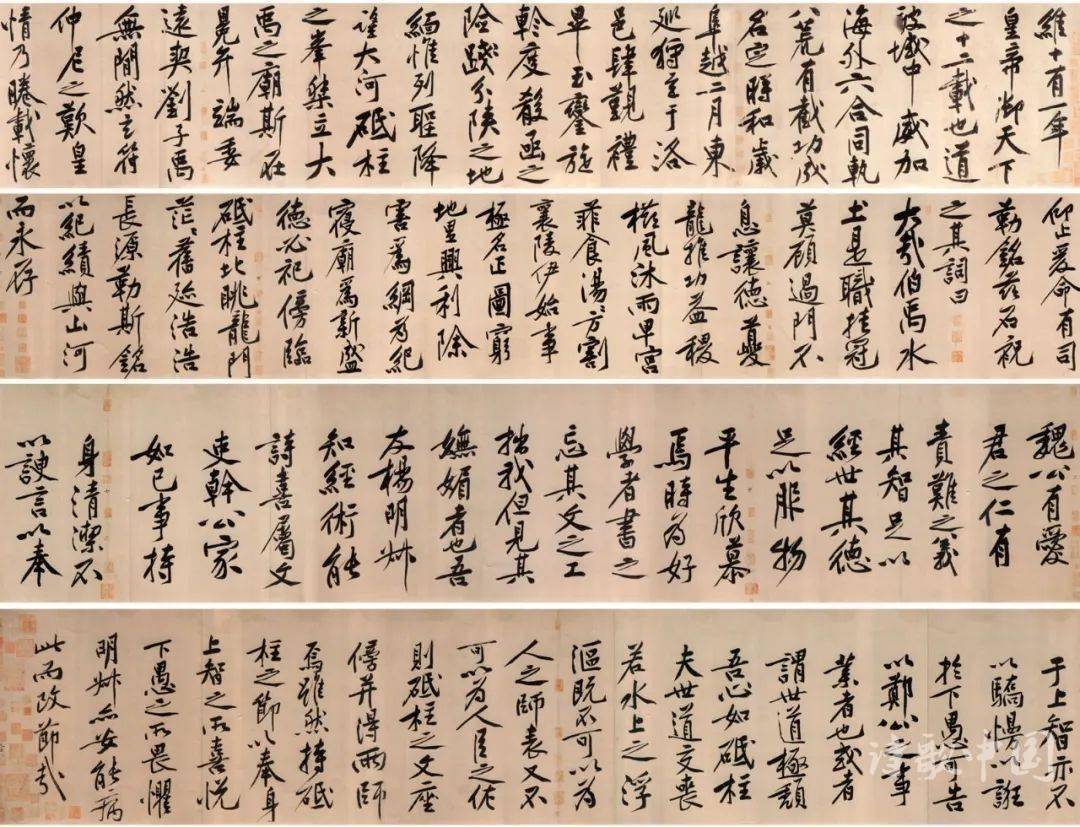 維十有一年
皇帝御天下
之十二載也道
被域中威加
海外六合同軌
八荒有截功成
名定時和歲
阜越二月東
巡狩至于洛
邑肆觀禮
畢玉鑾旋
軫度殽函之
險踐分陝之地
緬惟列聖降
望大河砥柱
之峯桀立大
禹之廟斯在
冕弁端委
遠契劉子禹
無間然玄符
仲尼之歎皇
情乃睠載懷
仰止爰命有司
勒銘茲石祝
之其詞曰
大哉伯禹水
土是職挂冠
莫顧過門不
息讓德夔
龍推功益稷
櫛風沐雨卑宮
菲食湯湯方割
襄陵伊始事
極名正圖窮
地里興利除
害為綱為紀
寢廟為新盛
德必祀傍臨
砥柱北眺龍門
茫茫舊跡浩浩
長源勒斯銘
以紀績與山河
而永存
魏公有愛
君之仁有
責難之義
其智足以
經世其德
足以服物
平生欣慕
焉時為好
學者書之
忘其文之工
拙我但見其
嫵媚者也吾
友楊明叔
知經術能
詩喜屬文
吏幹公家
如己事持
身清潔不
以諛言以奉
于上智亦不
以驕慢以誑
於下愚可告
以鄭公之事
業者也或者
謂世道極頹
吾心如砥柱
夫世道交喪
若水上之浮
漚既不可以為
人之師表又不
可以為人臣之佐
則砥柱之文座
傍并得兩師
焉雖然持砥
柱之節以奉身
上智之所喜悅
下愚之所畏懼
明叔亦安能病
此而改節哉
诗歌中国